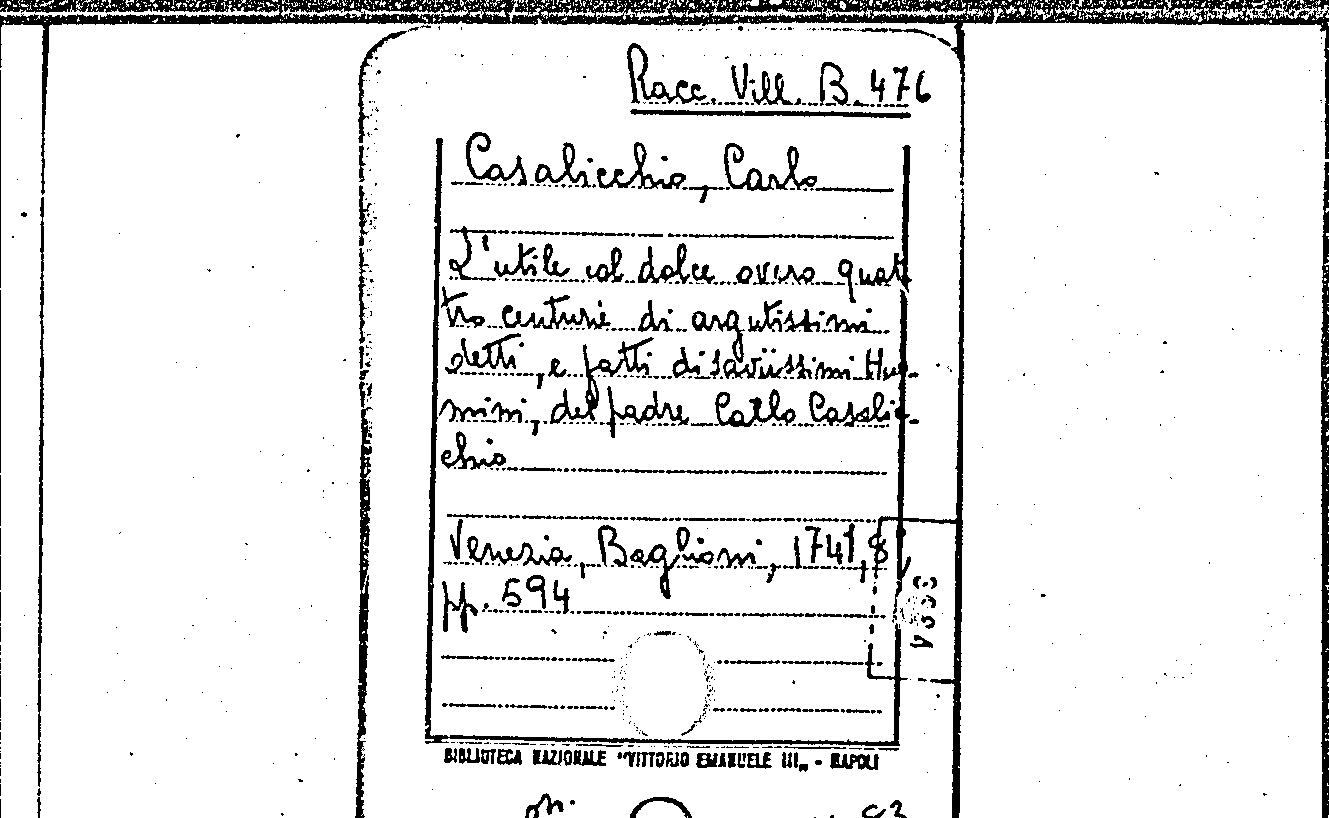 Racc. Vill. B. 476
Casalicchio, Carlo
L'utile col dolce overo quat
tro centurie di argutissimi
detti, e fatti di saviissimi Huo-
mini, del padre Carlo Casalic-
chio
Venezia, Baglioni, 1741, 8°,
pp. 594
BIBLIOTECA NAZIONALE "VITTORIO EMANUELE III„ - NAPOLI